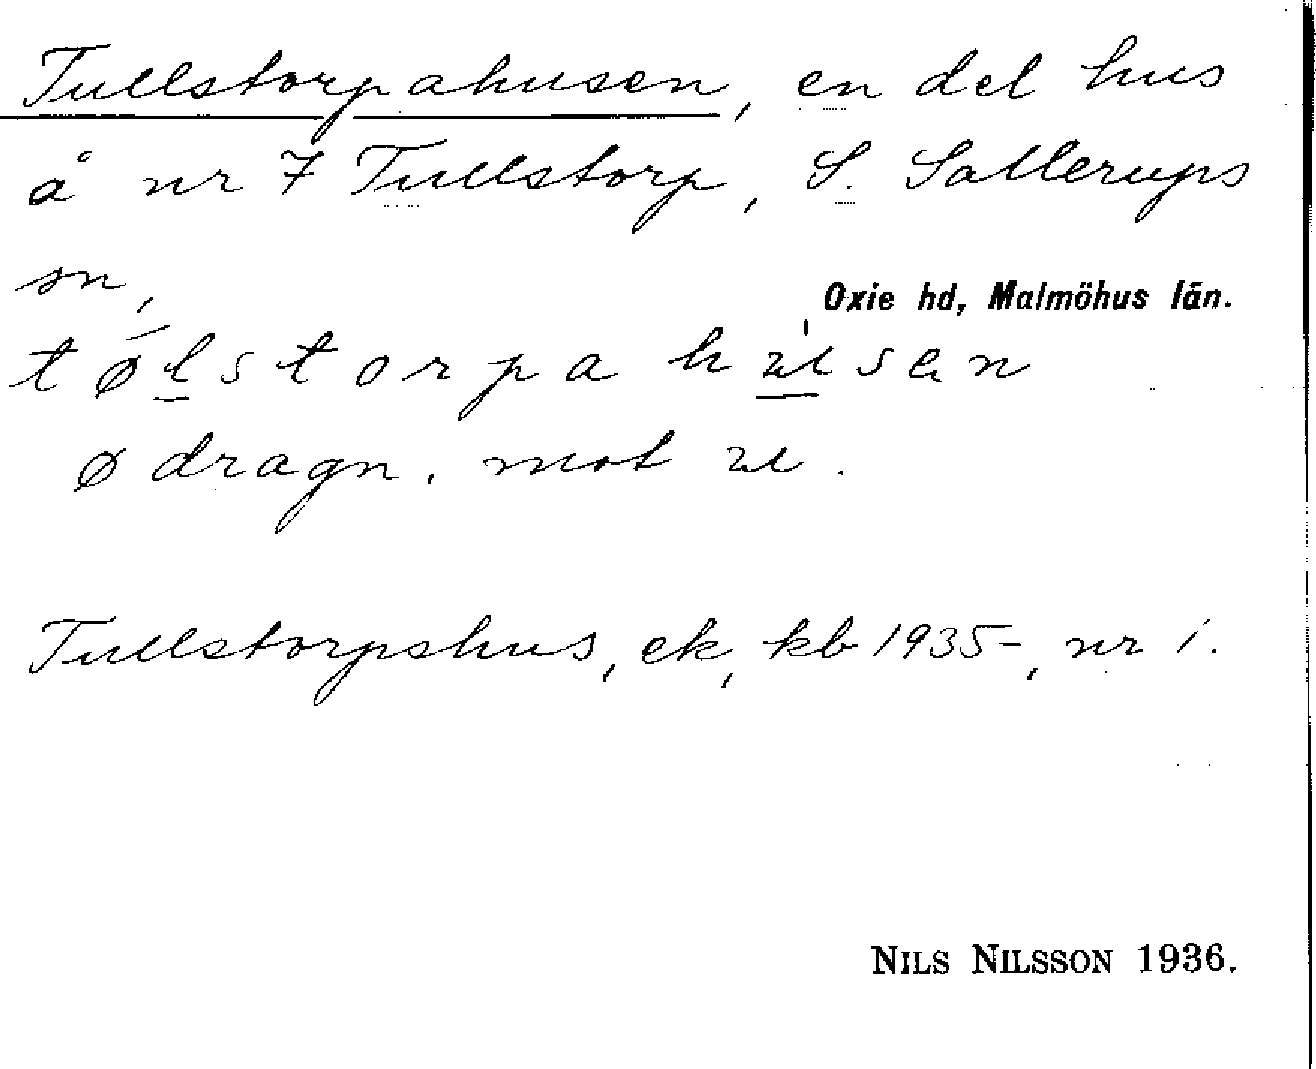 Tullstorpahusen, en del hus
å nr 7 Tullstorp, S. Sallerups
sn,
Oxie hd, Malmöhus län.
tǿlstorpa hu̍sen
ø dragn. mot u.
Tullstorpshus, ek, kb 1935-, nr 1.
NILS NILSSON 1936.